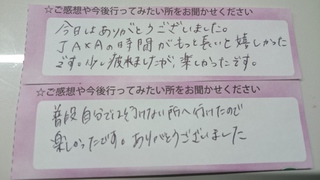 ☆ご感想や今後行ってみたい所をお聞かせください
今日はありがとうございました。
JAXAの時間がもっと長いと嬉しかった
です。少し疲れましたが、楽しかったです。
☆ご感想や今後行ってみたい所をお聞かせください
普段自分で行けない所へ行けたので
楽しかったです。ありがとうございました